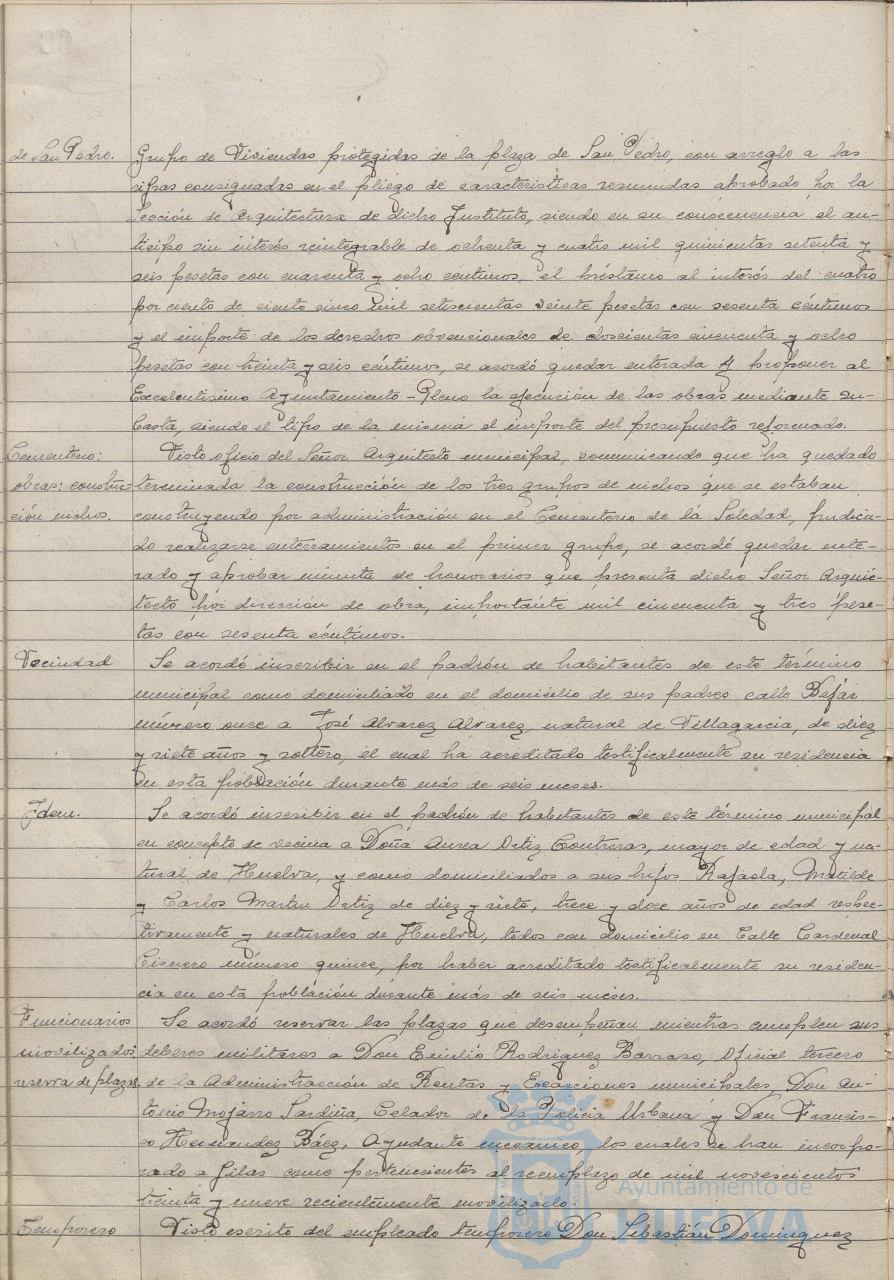 de San Pedro. Grupo de Viviendas protegidas de la plaza de San Pedro, con arreglo a las
cifras consignadas en el pliego de características resumidas aprobado por la
Sección de Arquitectura de dicho Instituto, siendo en su consecuencia el an-
ticipo sin interés reintegrable de ochenta y cuatro mil quinientas setenta y
seis pesetas con cuarenta y ocho centimos, el préstamo al interés del cuatro
por ciento de ciento cinco mil setecientas veinte pesetas con sesenta céntimos
y el importe de los derechos obvencionales de doscientas cincuenta y ocho
pesetas con treinta y seis céntimos, se acordó quedar enterada y proponer al
Excelentísimo Ayuntamiento-Pleno la ejecución de las obras mediante su-
basta, siendo el tipo de la misma el importe del presupuesto reformado.
Cementerio: Visto oficio del Señor Arquitecto municipal, comunicando que ha quedado
obras: construc- terminada la construcción de los tres grupos de nichos que se estaban
ción nichos. construyendo por administración en el Cementerio de la Soledad, pudien-
do realizarse enterramientos en el primer grupo, se acordó quedar ente-
rado y aprobar minuta de honorarios que presenta dicho Señor Arqui-
tecto por dirección de obra, importante mil cincuenta y tres pese-
tas con sesenta céntimos.
Vecindad Se acordó inscribir en el padrón de habitantes de este término
municipal como domiciliado en el domicilio de sus padres calle Bejar
número once a José Alvarez Alvarez, natural de Villagarcia, de diez
y siete años y soltero, el cual ha acreditado testificalmente su residencia
en esta población durante más de seis meses.
Idem. Se acordó inscribir en el padrón de habitantes de este término municipal
en concepto de vecina a Doña Aurea Ortiz Contreras, mayor de edad y na-
tural de Huelva, y como domiciliados a sus hijos Rafaela, Matilde
y Carlos Martin Ortiz de diez y siete, trece y doce años de edad respec-
tivamente y naturales de Huelva, todos con domicilio en Calle Cardenal
Cisnero número quince, por haber acreditado testificalmente su residen-
cia en esta población durante más de seis meses.
Funcionarios Se acordó reservar las plazas que desempeñan mientras cumplen sus
movilizados, deberes militares a Don Emilio Rodriguez Barraso, Oficial tercero
reserva de plazas. de la Administracción de Rentas y Exacciones municipales, Don An-
tonio Mojarro Sardiña, Celador de la Policia Urbana y Don Francis-
co Hernandez Báez, Ayudante mecanico, los cuales se han incorpo-
rado a filas como pertenecientes al reemplazo de mil novescientos
treinta y nueve recientemente movilizado.
Temporero Visto escrito del empleado temporero Don Sebastián Dominguez
Ayuntamiento de
HUELVA